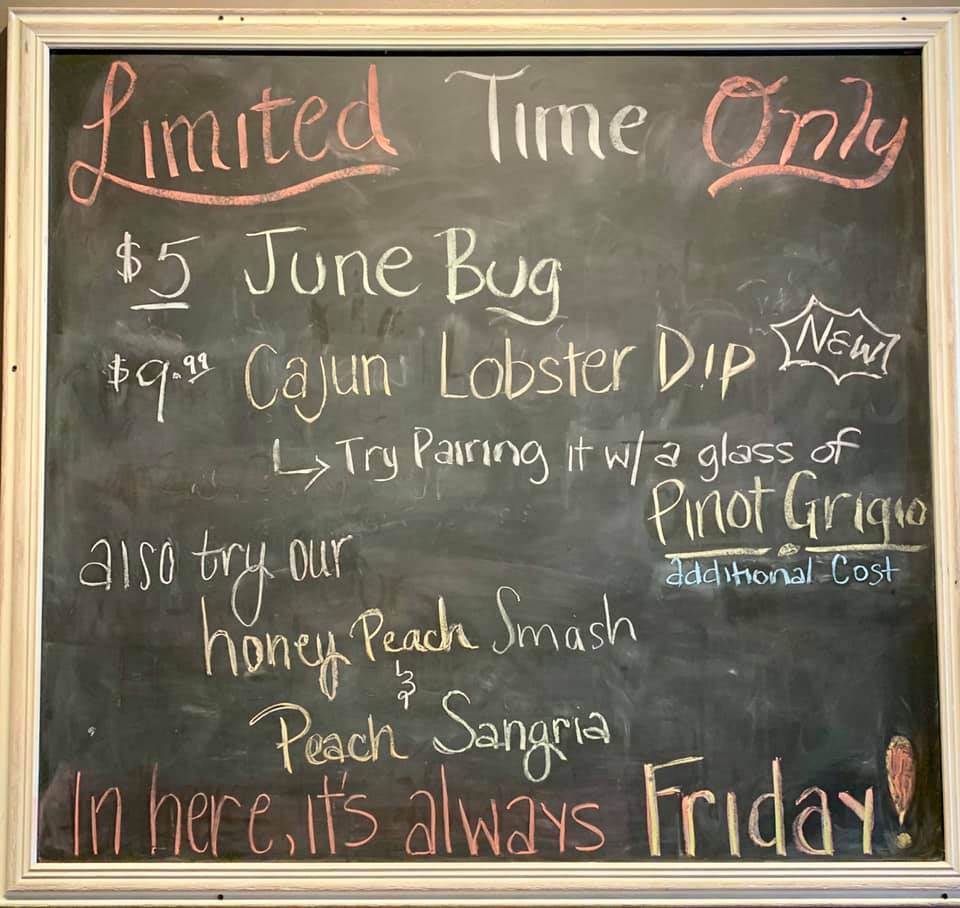 Limited Time Only
$5 June Bug
$9.99 Cajun Lobster Dip New!
↳ Try Pairing it w/ a glass of
Pinot Grigio
additional Cost
also try our
honey Peach Smash
&
Peach Sangria
In here, it's always Friday!